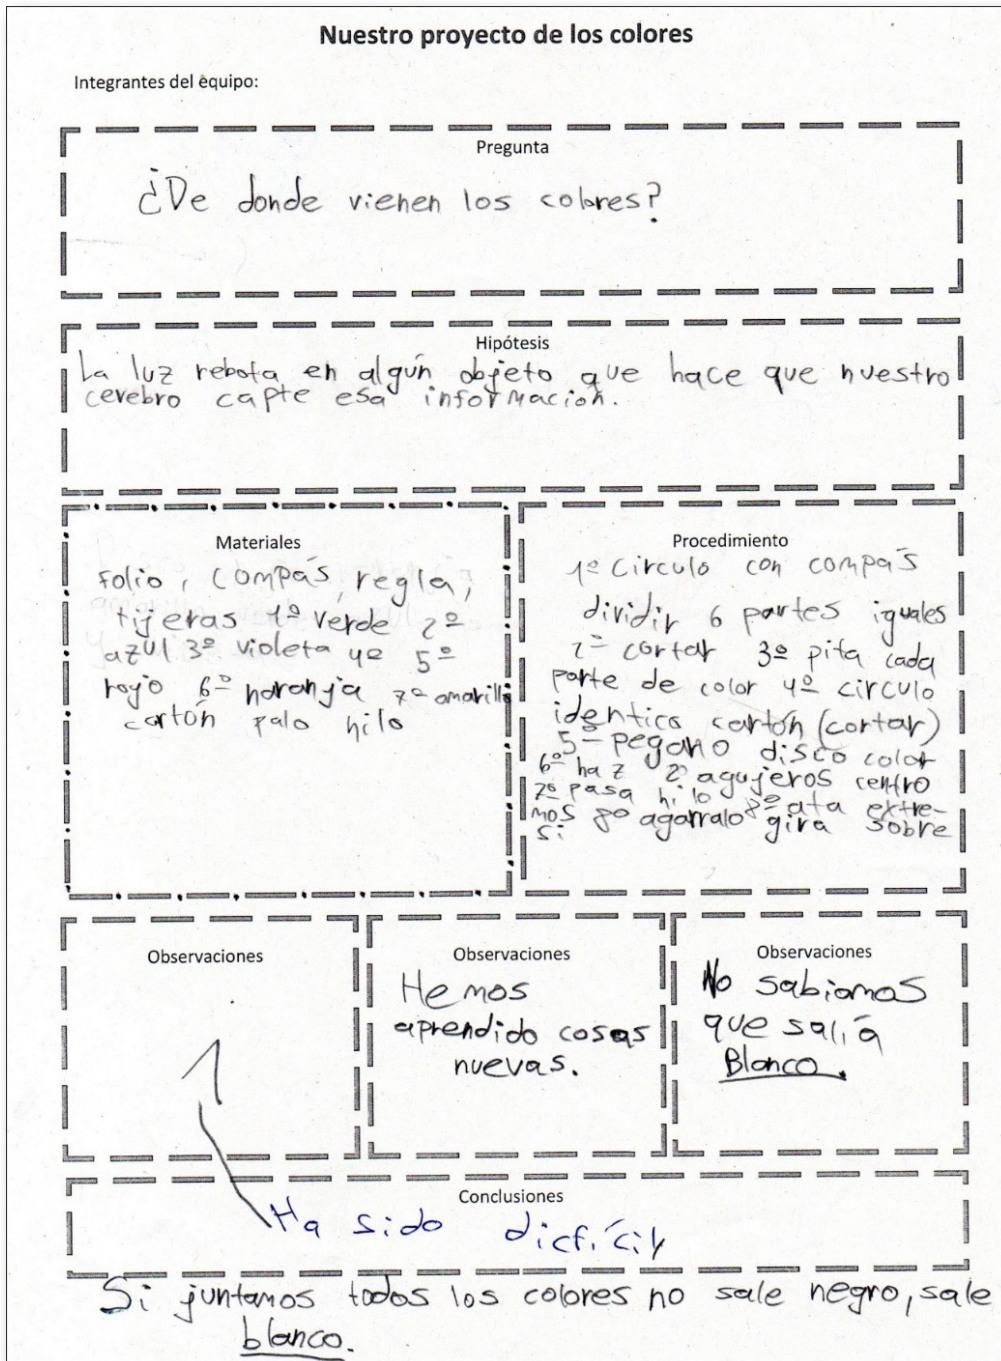 Nuestro proyecto de los colores
Integrantes del equipo:
Pregunta
¿De donde vienen los colores?
Hipótesis
La luz rebota en algún objeto que hace que nuestro
cerebro capte esa información.
Materiales
folio, compás, regla,
tijeras 1º verde 2º
azul 3º violeta 4º 5º
rojo 6º naranja 7º amarillo
cartón palo hilo
Procedimiento
1º Circulo con compás
dividir 6 partes iguales
2º cortar 3º pita cada
parte de color 4º circulo
identico cartón (cortar)
5º pegano disco color
6º haz 2º agujeros centro
7º pasa hilo 8º ata extre-
mos 8º agarralo gira sobre
si
Observaciones
1
Observaciones
Hemos
aprendido cosas
nuevas.
Observaciones
No sabiamos
que salía
Blanco.
Conclusiones
Ha sido dicfícil
Si juntamos todos los colores no sale negro, sale
blanco.